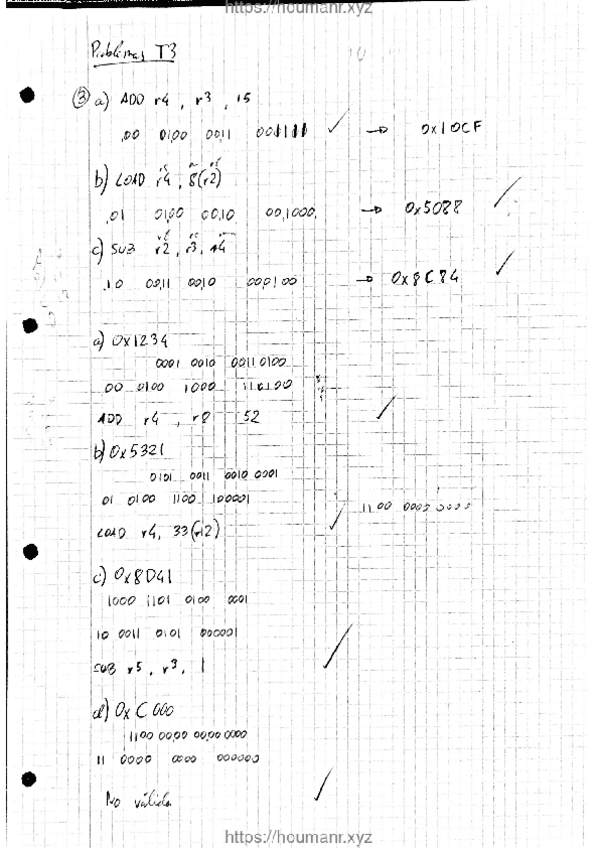 https://houmanr.xyz
Problemas T3
③ a) ADD r4 , r3 , 15
00 0100 0011 001111 ✓ → 0x10CF
b) LOAD r4 , 8(r2)
01 0100 0010 001000 → 0x5088 ✓
c) SUB r2 , r3 , r4
10 0011 0010 000100 → 0x8C84 ✓
a) 0x1234
0001 0010 0011 0100
00 0100 1000 110100
ADD r4 , r8 52 ✓
b) 0x5321
0101 0011 0010 0001
01 0100 1100 100001
1100 0000 0000
LOAD r4, 33(r12) ✓
c) 0x8D41
1000 1101 0100 0001
10 0011 0101 000001
SUB r5 , r3 , 1 ✓
d) 0xC000
1100 0000 0000 0000
11 0000 0000 000000
No válida ✓
https://houmanr.xyz